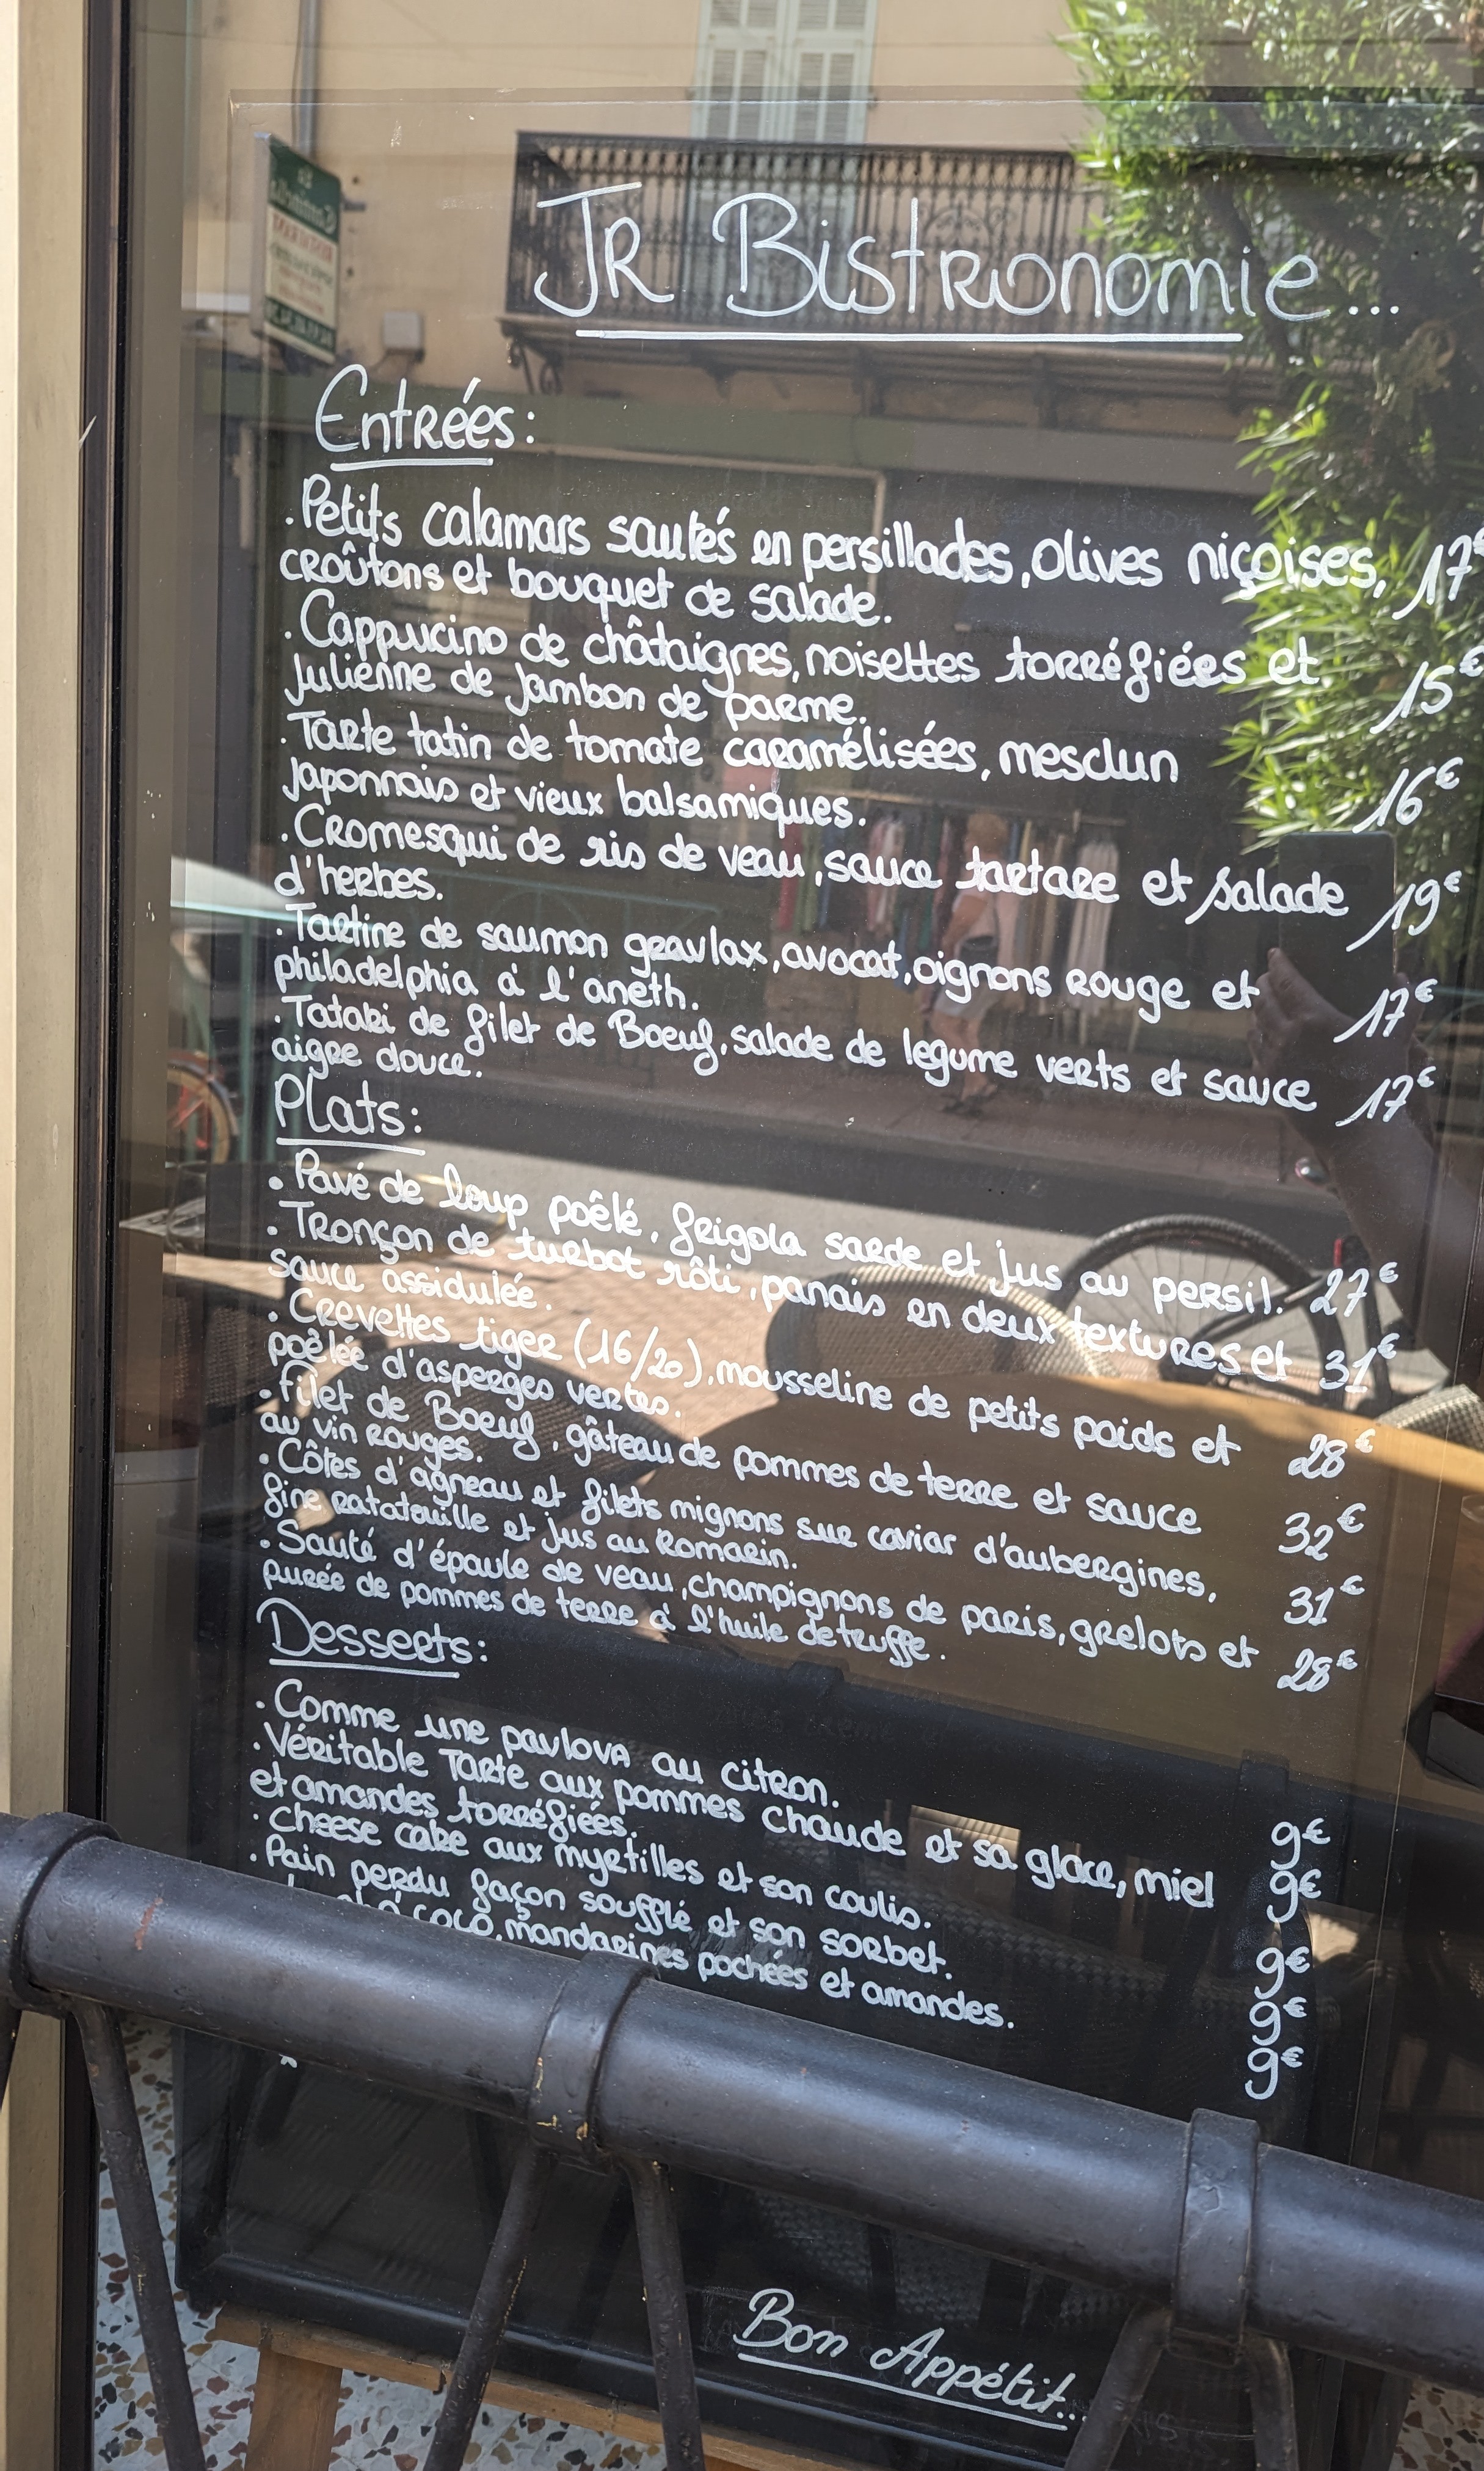 JR Bistronomie...
Entrées:
.Petits calamars sautés en persillades, olives niçoises, 17€
croûtons et bouquet de salade.
.Cappucino de châtaignes, noisettes torréfiées et
julienne de jambon de parme. 15€
.Tarte tatin de tomate caramélisées, mesclun
japonnais et vieux balsamiques. 16€
.Cromesqui de ris de veau, sauce tartare et salade 19€
d'herbes.
.Tartine de saumon gravlax, avocat, oignons rouge et 17€
philadelphia à l'aneth.
.Tataki de filet de Boeuf, salade de legume verts et sauce 17€
aigre douce.
Plats:
.Pavé de loup poêlé, frigola sarde et jus au persil. 27€
.Tronçon de turbot rôti, panais en deux textures et 31€
sauce assidulée.
.Crevettes tiger (16/20), mousseline de petits poids et 28€
poêlée d'asperges vertes.
.Filet de Boeuf, gâteau de pommes de terre et sauce 32€
au vin rouges.
.Côtes d'agneau et filets mignons sur caviar d'aubergines, 31€
fine ratatouille et jus au Romarin.
.Sauté d'épaule de veau, champignons de paris, grelots et 28€
purée de pommes de terre à l'huile de truffe.
Desserts:
.Comme une pavlova au citron. 9€
.Véritable Tarte aux pommes chaude et sa glace, miel 9€
et amandes torréfiées.
.Cheese cake aux myrtilles et son coulis. 9€
.Pain perdu façon soufflé et son sorbet. 9€
coco, mandarines pochées et amandes. 9€
Bon Appétit...